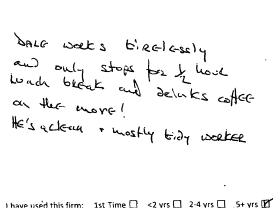 DALE works tirelessly
and only stops for 1/2 hour
lunch break and drinks coffee
on the move!
He's a clean + mostly tidy worker
I have used this firm: 1st Time ☐ <2 yrs ☐ 2-4 yrs ☐ 5+ yrs ☑